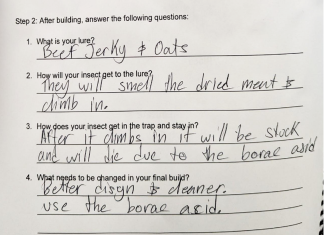 Step 2: After building, answer the following questions:
1. What is your lure?
Beef Jerky & Oats
2. How will your insect get to the lure?
They will smell the dried meat &
climb in.
3. How does your insect get in the trap and stay in?
After it climbs in it will be stuck
and will die due to the borac asid
4. What needs to be changed in your final build?
Better disgn & cleaner.
use the borac asid.